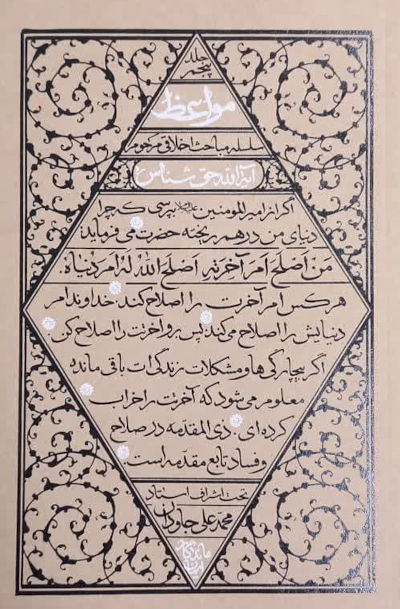 جلد
پنجم
مواعظ
سلسله مباحث اخلاقی مرحوم
آیة الله حق شناس
اگر از امیرالمومنین علیه‌السلام بپرسی که چرا
دنیای من در هم ریخته حضرت می فرماید:
مَن اَصلَحَ اَمرَ آخِرَتِهِ اَصلَحَ اللهُ لَهُ اَمرَ دُنیاهُ.
هر کس امر آخرت را اصلاح کند، خداوند امر
دنیایش را اصلاح می کند، پس برو آخرتت را اصلاح کن.
اگر بیچارگی ها و مشکلات زندگی ات باقی مانده
معلوم می شود که آخرتت را خراب
کرده ای. ذی المقدمه در صلاح
و فساد تابع مقدمه است.
تحت اشراف استاد
محمد علی جاودان